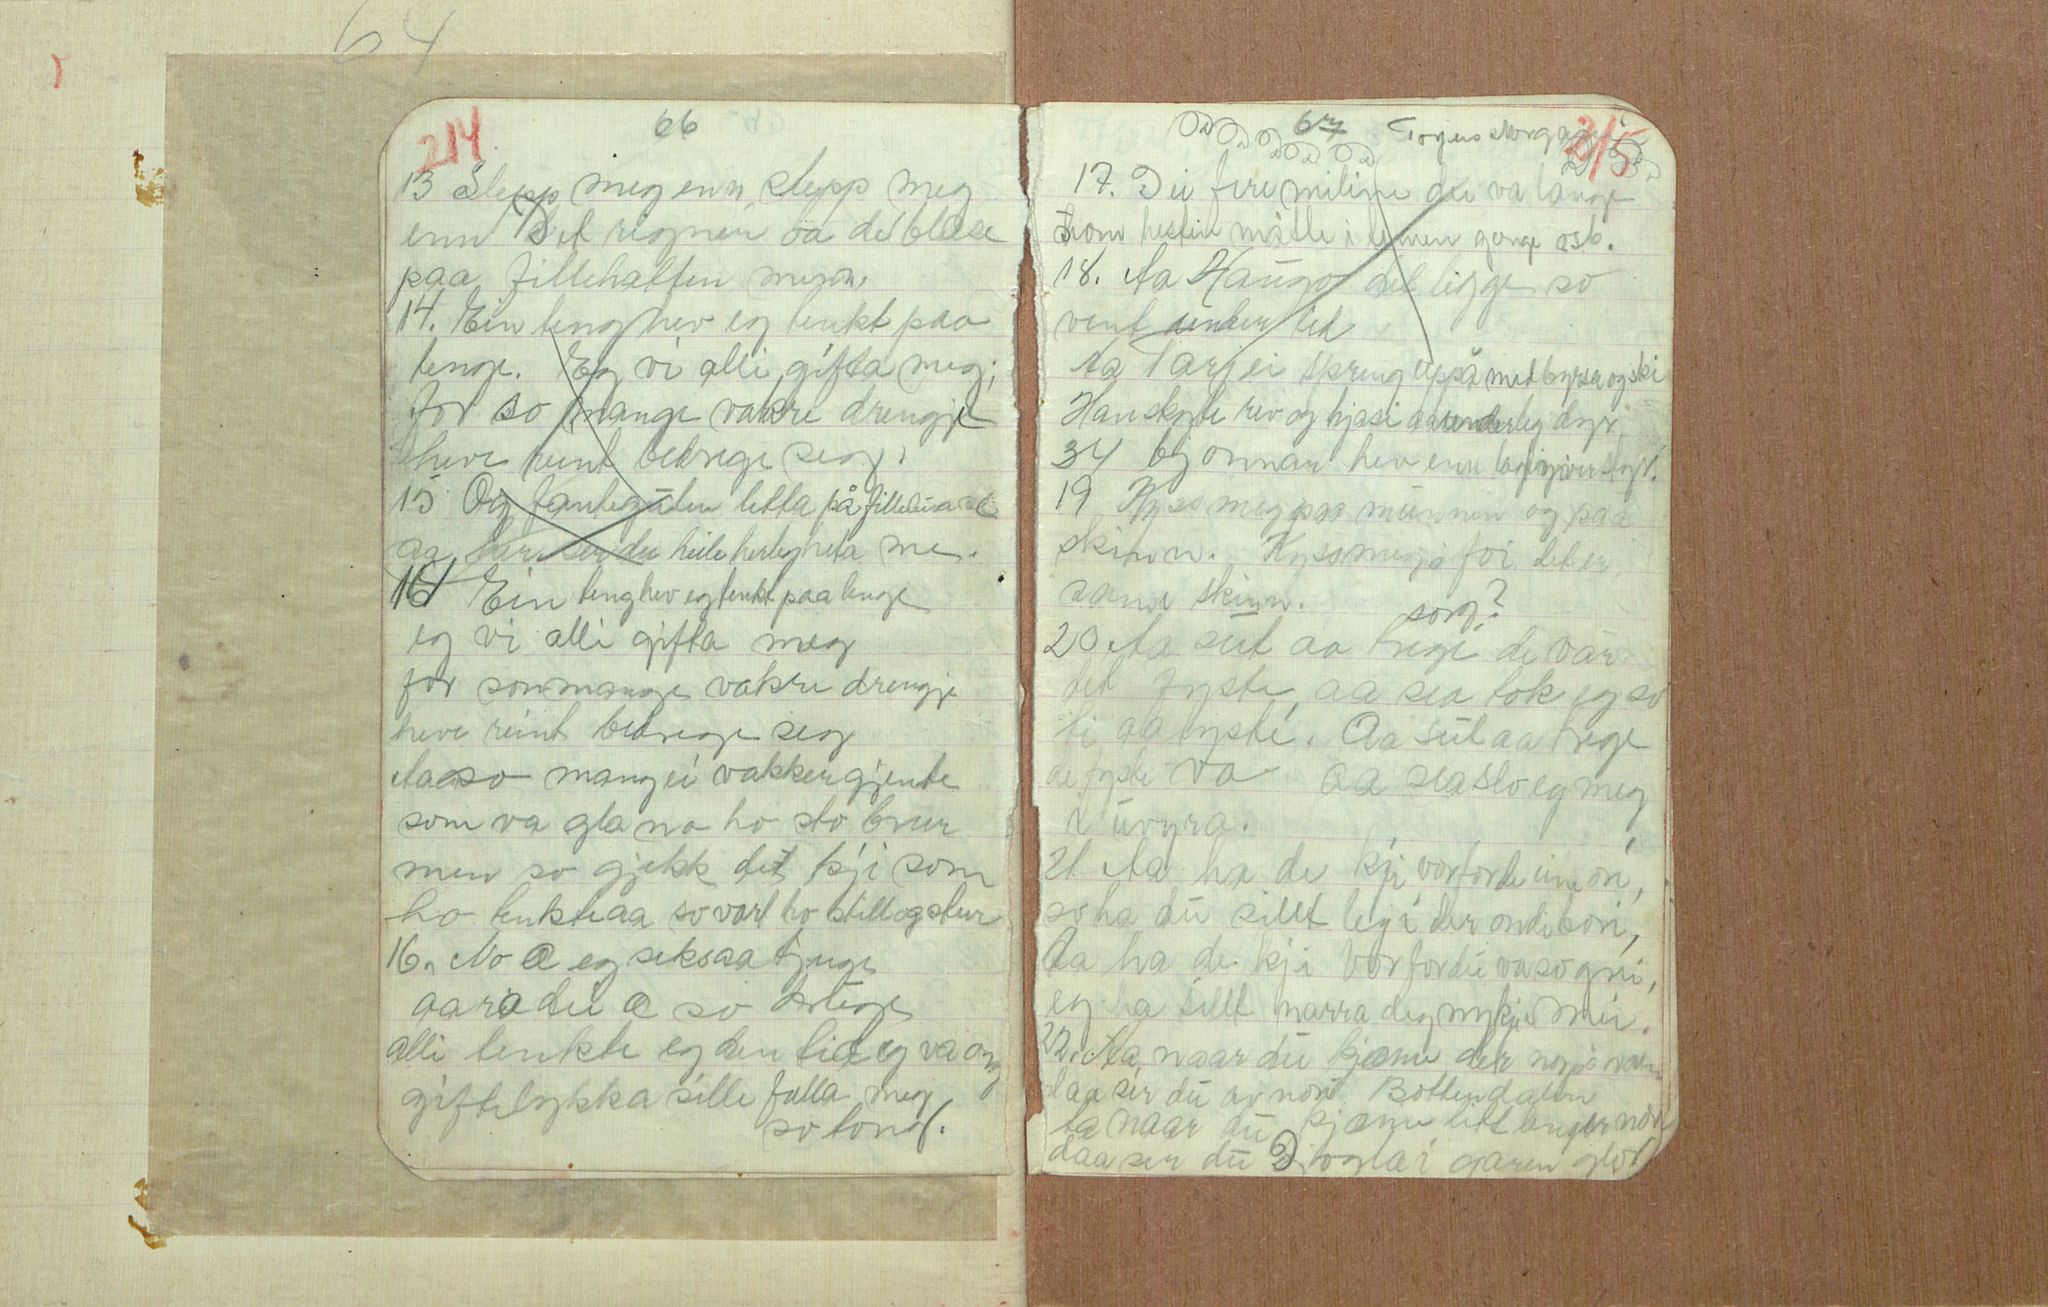 64
214
66
13 Slepp meg enn slepp meg
enn Det regner oa de blæse
paa fillehatten megin.
14. Ein teng hev eg tenkt paa
lenge. Eg vi alli gifta meg;
for so mange vakre drengje
heve reint bedrege seg.
15 Og fantegùten letta på fillelùva si
aa her ser du heile herlegheta mi.
16 Ein teng hev eg tenkt paa lenge
eg vi alli gifta meg
for so mange vakre drengje
heve reint bedrege seg
Aa so mang ei vakker gjente
som va gla naar ho sto brur
men so gjekk det kji som
ho tenkte aa so vart ho still og stur
16. No æ eg seks aa tjuge
aar a du æ so
alli tenkte eg den tid eg va ong
giftelykka sille falla meg
so tong.
67
215
17. Dei fire miline dei va lange
som hesten måtte i gange osb.
18. Aa Haugo det ligge so
vent under lid
Aa Tarjei spreng uppå med byrsa og ski
Han skjote rev og hjasi aa underleg dyr
34 bjønnar hev enn
19 Kyss meg paa munnen og paa
skinn. Kyss meg i det er
same skinn.
sorg?
20 Aa sut aa trege de var
det fyste, aa sea tok eg so
ti aa lyste. Aa sut aa trege
de fyste va aa sea slo eg meg
i ùvyra.
21 Aa ha de kji vore for de
so ha du sillt legi der
Aa ha de kji vore for du va so
eg ha sillt narra deg mykje mei.
22. Aa, naar du kjæme der
daa ser du av Bottendalen
Aa naar du kjæme litt lenger nor
daa ser du i garen